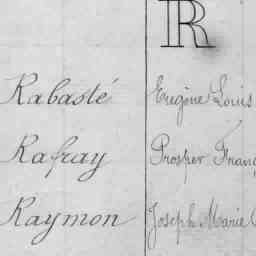 R
Rabasté Eugène Louis
Rafray Prosper Franç
Raymon Joseph Marie